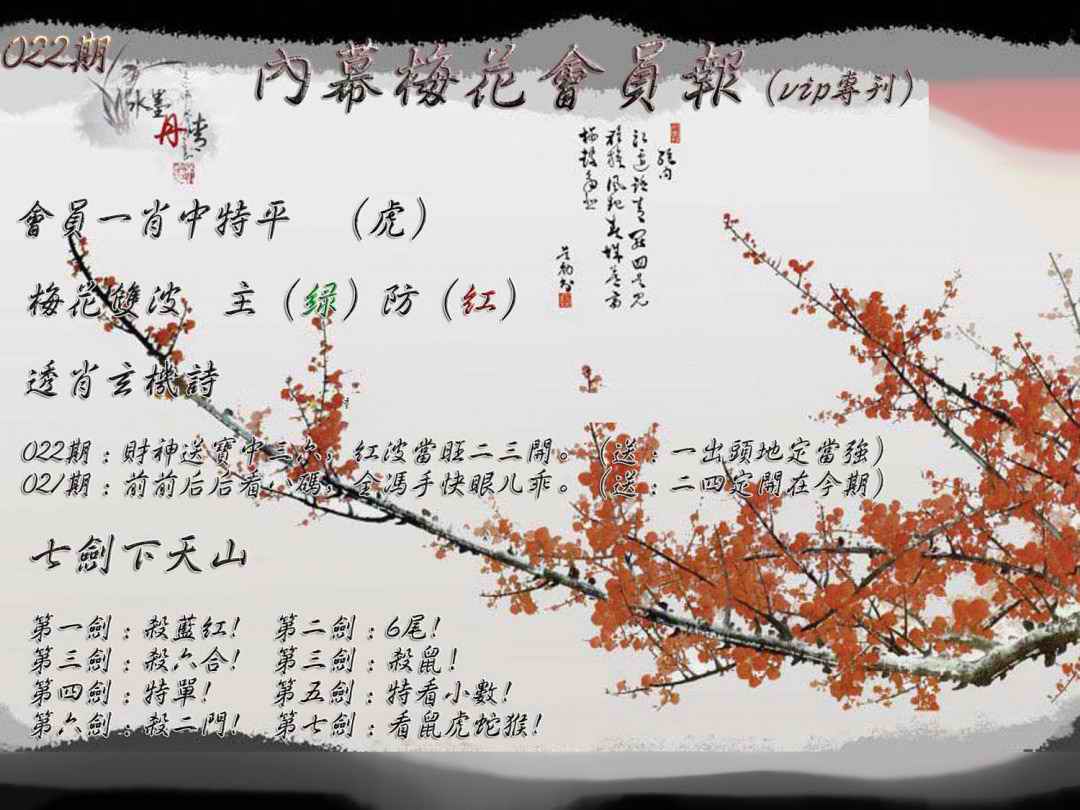 022期
內幕梅花會員報(vip專刊)
水墨
丹青
會員一肖中特平 (虎)
梅花雙波 主(绿)防(红)
透肖玄機詩
022期:財神送寶中三次,紅波當旺二三開。(送:一出頭地定當強)
021期:前前后后看八碼,金馮手快眼儿乖。(送:二四定開在今期)
七劍下天山
第一劍:殺藍紅! 第二劍:6尾!
第三劍:殺六合! 第三劍:殺鼠!
第四劍:特單! 第五劍:特看小數!
第六劍:殺二門! 第七劍:看鼠虎蛇猴!